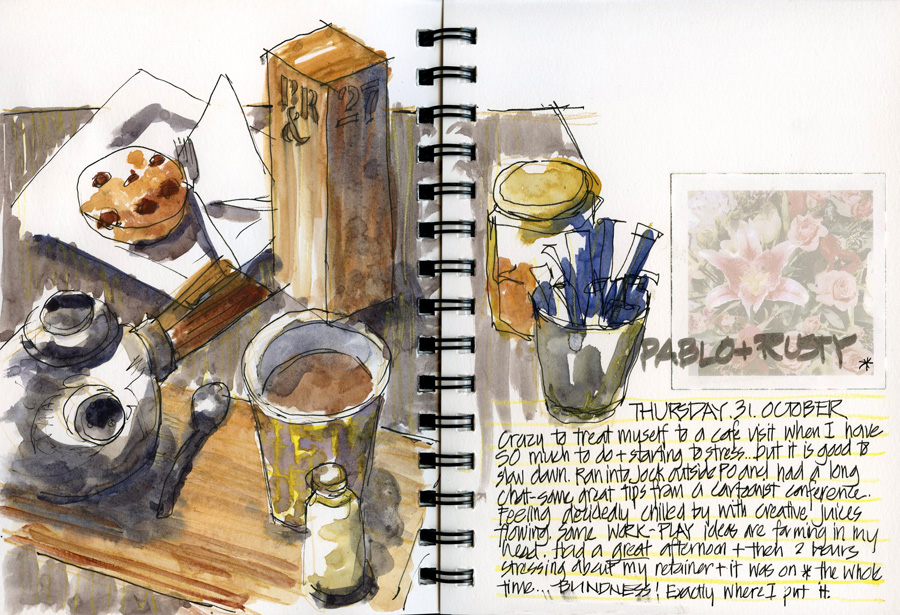 BR '27
&
PABLO + RUSTY *
THURSDAY. 31. OCTOBER
Crazy to treat myself to a café visit when I have
SO much to do + starting to stress...but it is good to
slow down. Ran into Jock outside PO and had a long
chat - some great tips from a cartoonist conference.
Feeling decidedly chilled by with creative juices
flowing. Some WORK-PLAY ideas are forming in my
head. Had a great afternoon + then 2 hours
stressing about my retainer + it was on * the whole
time... BLINDNESS! Exactly where I put it.